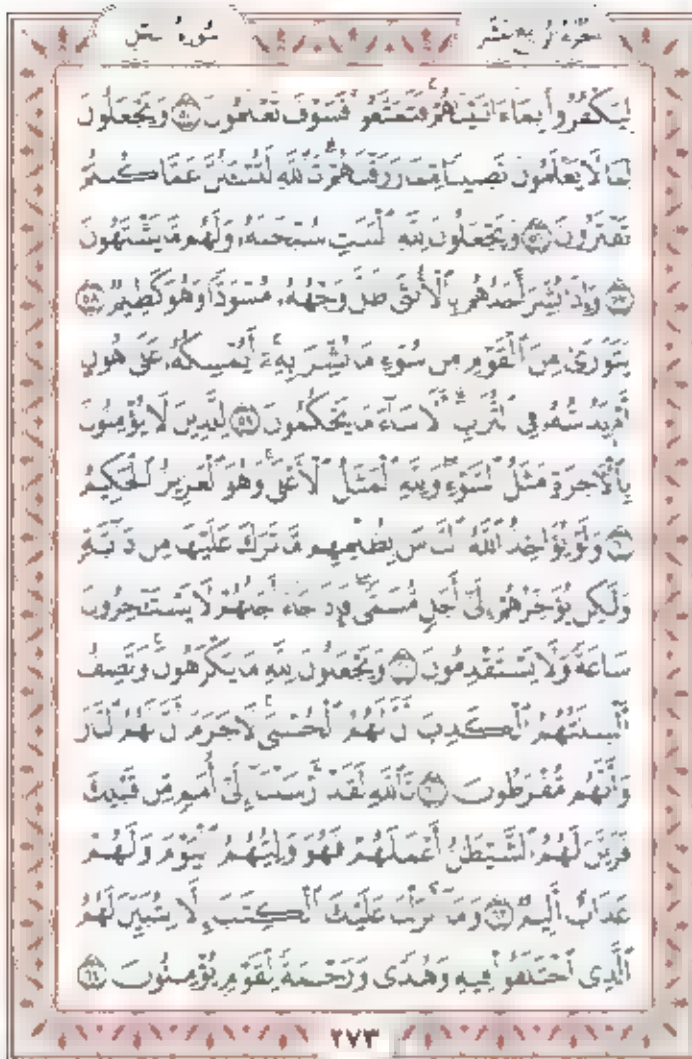 سورة النحل
الجزء الرابع عشر
لِيَكْفُرُوا۟ بِمَآ ءَاتَيْنَٰهُمْ ۚ فَتَمَتَّعُوا۟ ۖ فَسَوْفَ تَعْلَمُونَ ۝٥٥ وَيَجْعَلُونَ
لِمَا لَا يَعْلَمُونَ نَصِيبًا مِّمَّا رَزَقْنَٰهُمْ ۗ تَٱللَّهِ لَتُسْـَٔلُنَّ عَمَّا كُنتُمْ
تَفْتَرُونَ ۝٥٦ وَيَجْعَلُونَ لِلَّهِ ٱلْبَنَٰتِ سُبْحَٰنَهُۥ ۙ وَلَهُم مَّا يَشْتَهُونَ
۝٥٧ وَإِذَا بُشِّرَ أَحَدُهُم بِٱلْأُنثَىٰ ظَلَّ وَجْهُهُۥ مُسْوَدًّا وَهُوَ كَظِيمٌ ۝٥٨
يَتَوَٰرَىٰ مِنَ ٱلْقَوْمِ مِن سُوٓءِ مَا بُشِّرَ بِهِۦٓ ۚ أَيُمْسِكُهُۥ عَلَىٰ هُونٍ
أَمْ يَدُسُّهُۥ فِى ٱلتُّرَابِ ۗ أَلَا سَآءَ مَا يَحْكُمُونَ ۝٥٩ لِلَّذِينَ لَا يُؤْمِنُونَ
بِٱلْءَاخِرَةِ مَثَلُ ٱلسَّوْءِ ۖ وَلِلَّهِ ٱلْمَثَلُ ٱلْأَعْلَىٰ ۚ وَهُوَ ٱلْعَزِيزُ ٱلْحَكِيمُ
۝٦٠ وَلَوْ يُؤَاخِذُ ٱللَّهُ ٱلنَّاسَ بِظُلْمِهِم مَّا تَرَكَ عَلَيْهَا مِن دَآبَّةٍ
وَلَٰكِن يُؤَخِّرُهُمْ إِلَىٰٓ أَجَلٍ مُّسَمًّى ۖ فَإِذَا جَآءَ أَجَلُهُمْ لَا يَسْتَـْٔخِرُونَ
سَاعَةً ۖ وَلَا يَسْتَقْدِمُونَ ۝٦١ وَيَجْعَلُونَ لِلَّهِ مَا يَكْرَهُونَ وَتَصِفُ
أَلْسِنَتُهُمُ ٱلْكَذِبَ أَنَّ لَهُمُ ٱلْحُسْنَىٰ ۖ لَا جَرَمَ أَنَّ لَهُمُ ٱلنَّارَ
وَأَنَّهُم مُّفْرَطُونَ ۝٦٢ تَٱللَّهِ لَقَدْ أَرْسَلْنَآ إِلَىٰٓ أُمَمٍ مِّن قَبْلِكَ
فَزَيَّنَ لَهُمُ ٱلشَّيْطَٰنُ أَعْمَٰلَهُمْ فَهُوَ وَلِيُّهُمُ ٱلْيَوْمَ وَلَهُمْ
عَذَابٌ أَلِيمٌ ۝٦٣ وَمَآ أَنزَلْنَا عَلَيْكَ ٱلْكِتَٰبَ إِلَّا لِتُبَيِّنَ لَهُمُ
ٱلَّذِى ٱخْتَلَفُوا۟ فِيهِ ۙ وَهُدًى وَرَحْمَةً لِّقَوْمٍ يُؤْمِنُونَ ۝٦٤
٢٧٣